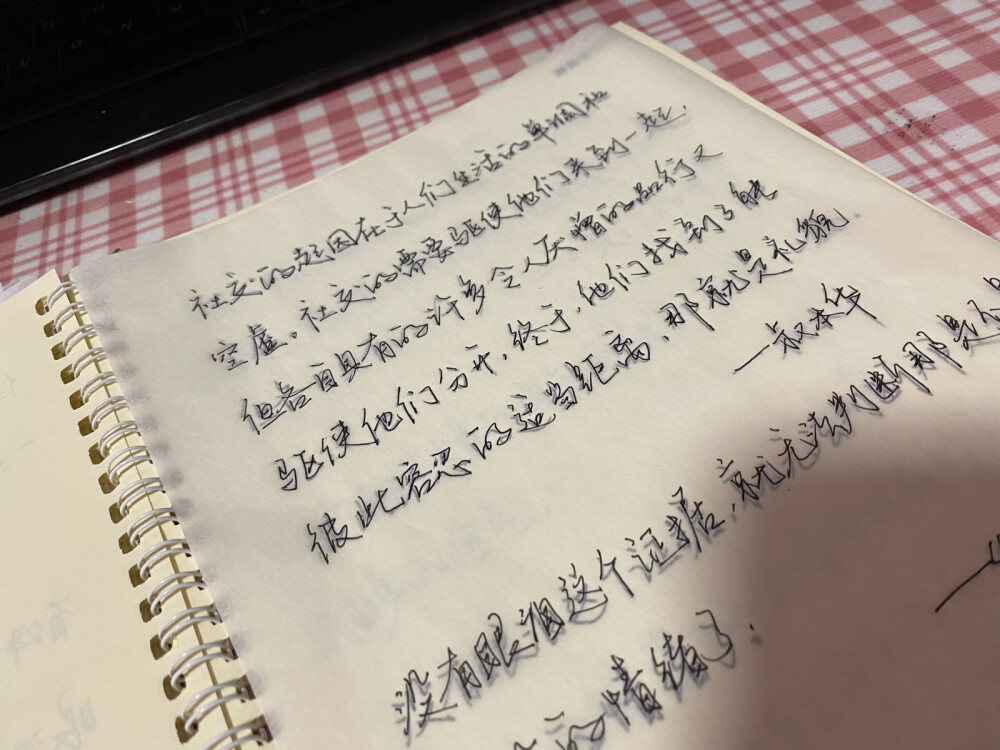 社交的起因在于人们生活的单调和
空虚。社交的需要驱使他们来到一起.
但各自具有的许多令人厌憎的品行又
驱使他们分开.终于,他们找到了能
彼此容忍的适当距离,那就是礼貌.
—叔本华
没有眼泪这个证据,就无法判断那是
的情绪了.